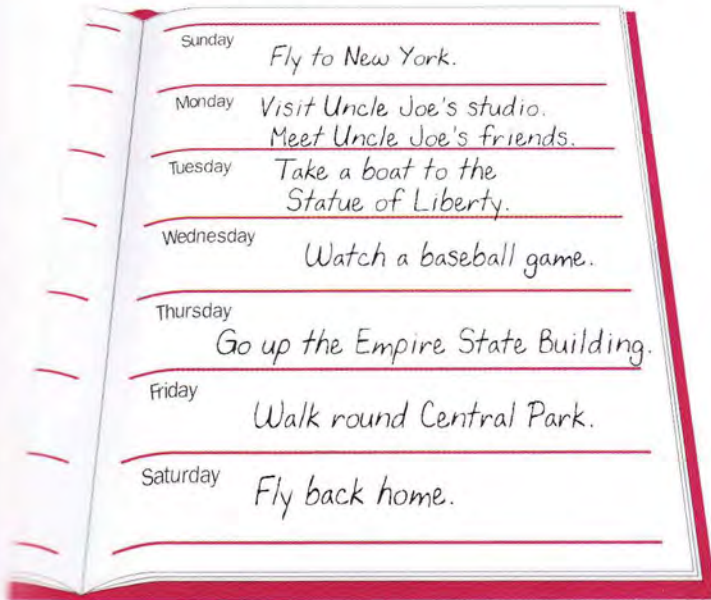 Sunday
Fly to New York.
Monday
Visit Uncle Joe's studio.
Meet Uncle Joe's friends.
Tuesday
Take a boat to the
Statue of Liberty.
Wednesday
Watch a baseball game.
Thursday
Go up the Empire State Building.
Friday
Walk round Central Park.
Saturday
Fly back home.